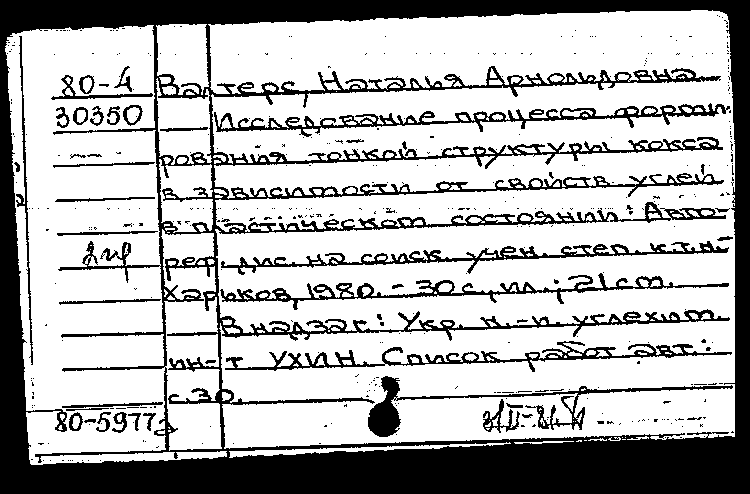 80-4 Валтерс, Наталья Арнольдовна
30350 Исследование процесса форми-
рования тонкой структуры кокса
в зависимости от свойств углей
в пластическом состоянии: Авто-
реф. дис. на соиск. учен. степ. к.т.н.-
Харьков, 1980. - 30 с., ил.; 21 см.
В надзаг: Укр. н.-и. углехим.
ин-т УХИН. Список работ авт.:
с. 30.
80-5977а